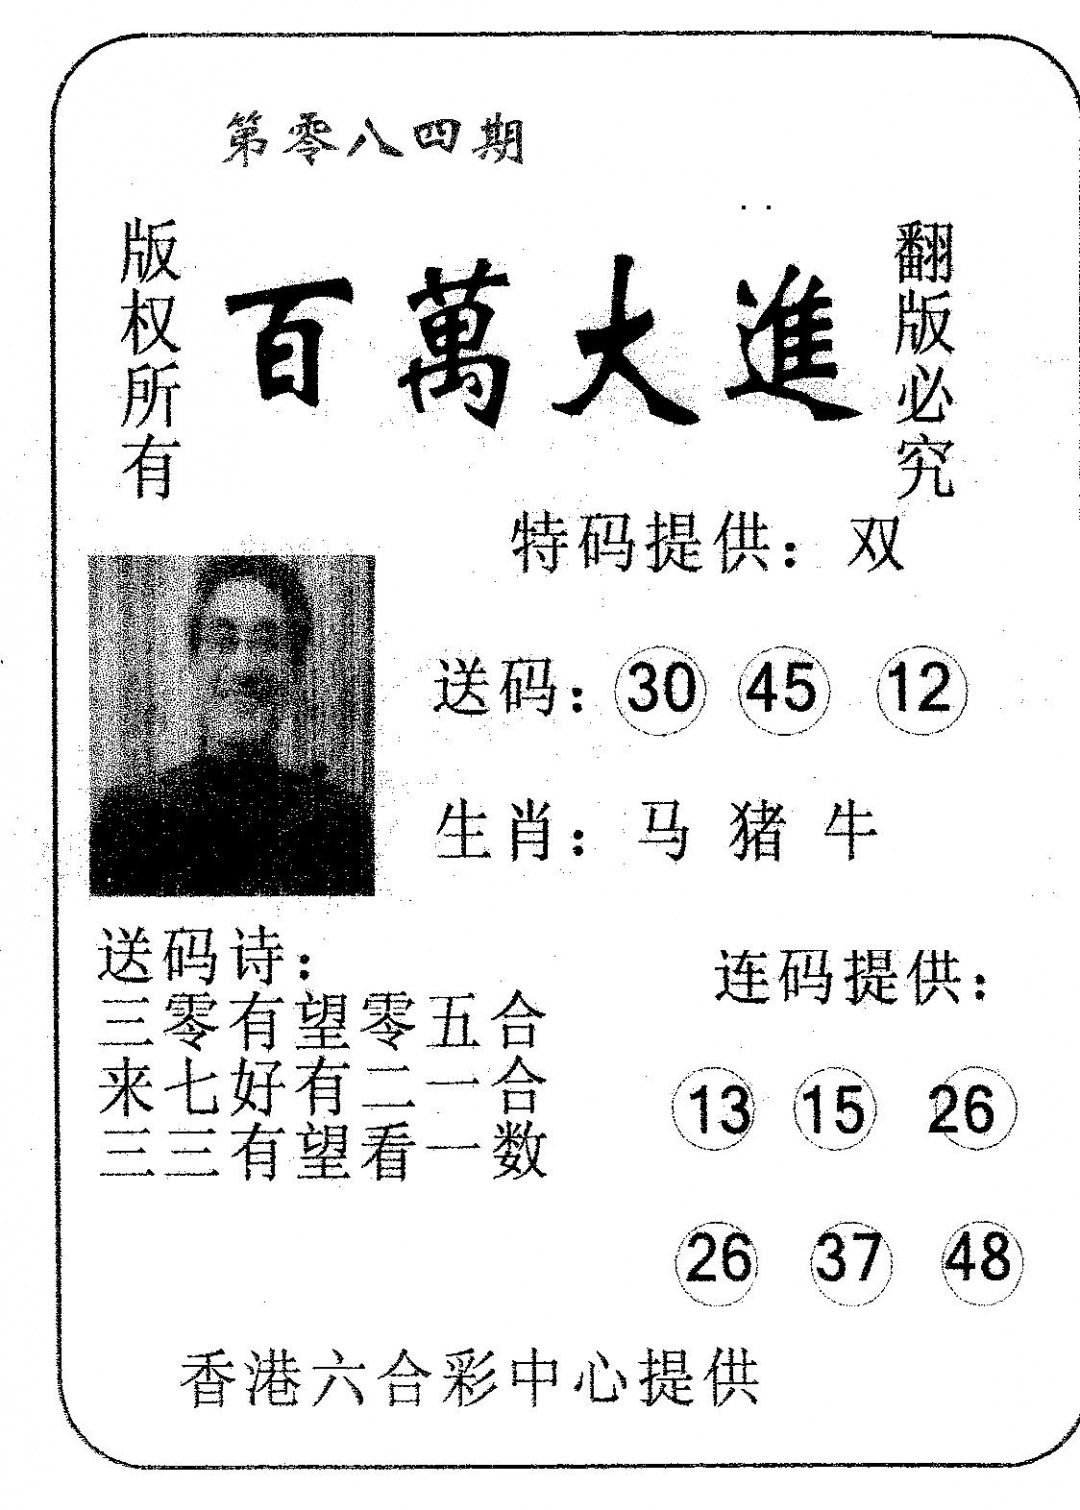 第零八四期
版权所有
百萬大進
翻版必究
特码提供：双
送码：30 45 12
生肖：马 猪 牛
送码诗：
三零有望零五合
来七好有二一合
三三有望看一数
连码提供：
13 15 26
26 37 48
香港六合彩中心提供